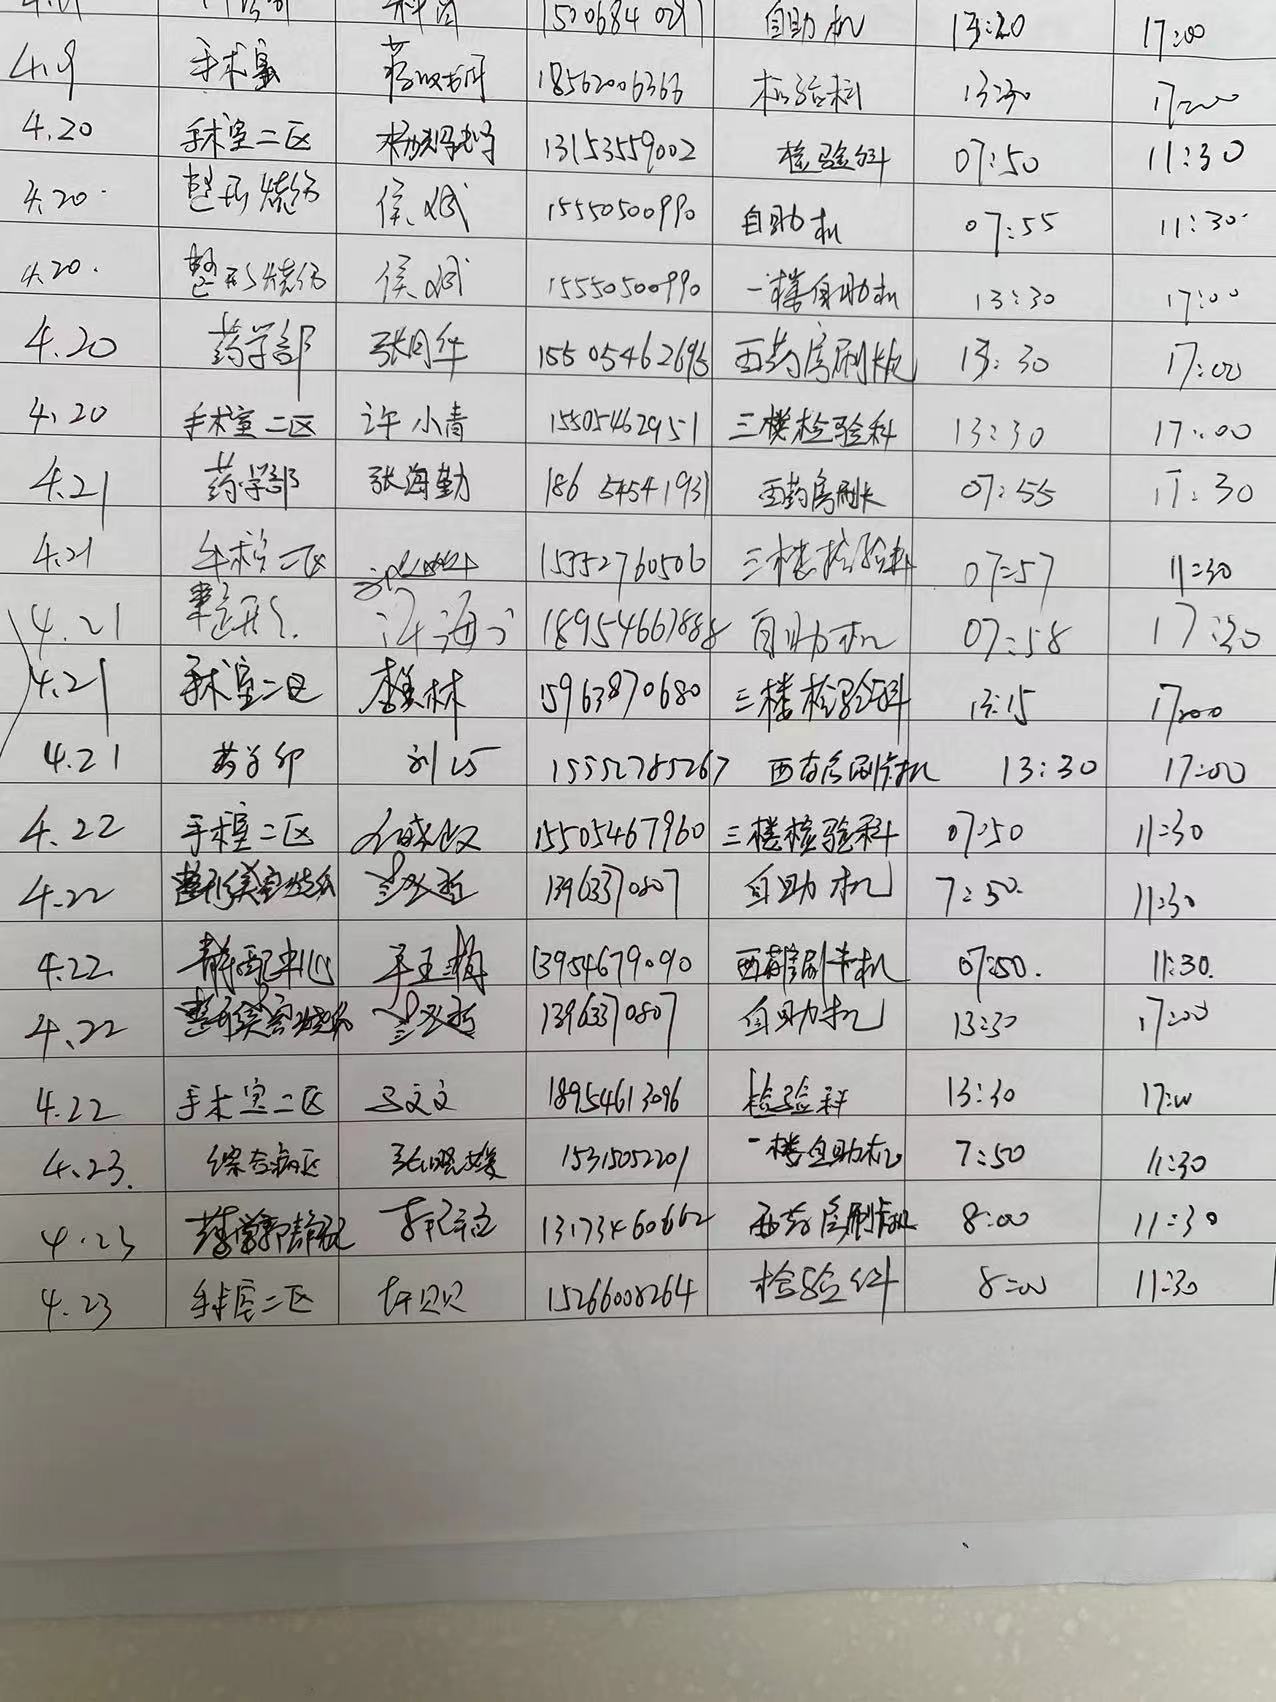 自助机 13:30 17:00
4.19 手术室 18562006366 检验科 13:30 17:00
4.20 手术室二区 13153559002 检验科 07:50 11:30
4.20. 整形烧伤 侯斌 15550500990 自助机 07:55 11:30.
4.20. 整形烧伤 侯斌 15550500990 一楼自助机 13:30 17:00
4.20 药学部 张同华 15505462696 西药房刷卡机 13:30 17:00
4.20 手术室二区 许小青 15505462951 三楼检验科 13:30 17:00
4.21 药学部 张海勤 18654541931 西药房刷卡 07:55 17:30
4.21 手术室二区 15552760506 三楼检验科 07:57 11:30
4.21 整形 18954667888 自助机 07:58 17:30
4.21 手术室二区 李美林 15963870680 三楼检验科 13:15 17:00
4.21 药学部 刘巧 15552785267 西药房刷卡机 13:30 17:00
4.22 手术室二区 15505467960 三楼检验科 07:50 11:30
4.22 13963370807 自助机 7:50. 11:30
4.22 静配中心 13954679090 西药房刷卡机 07:50. 11:30.
4.22 13963370807 自助机 13:30 17:00
4.22 手术室二区 马文文 18954613096 检验科 13:30 17:00
4.23. 综合病区 张晓媛 15315052201 一楼自助机 7:50 11:30
4.23 药学部静配 13173460662 西药房刷卡机 8:00 11:30
4.23 手术室二区 15266008264 检验科 8:00 11:30